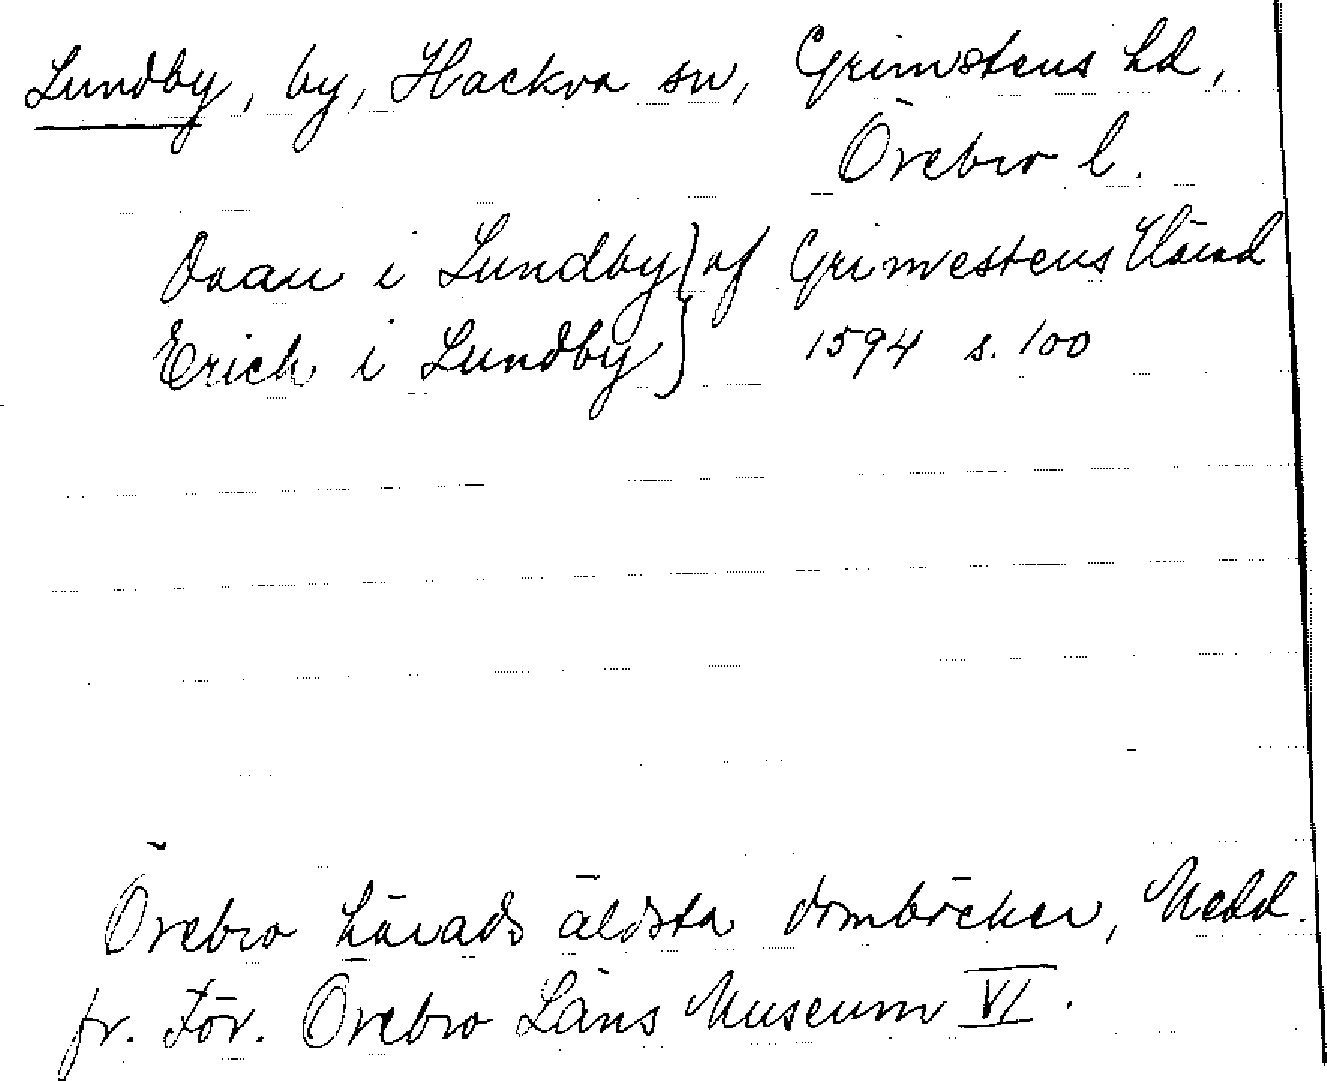 Lundby, by, Hackva sn, Grimstens hd,
Örebro l.
i Lundby } af Grimestens Härad
Erich i Lundby } 1594 s. 100
Örebro härads äldsta domböcker, Medd.
fr. För. Örebro Läns Museum VI.